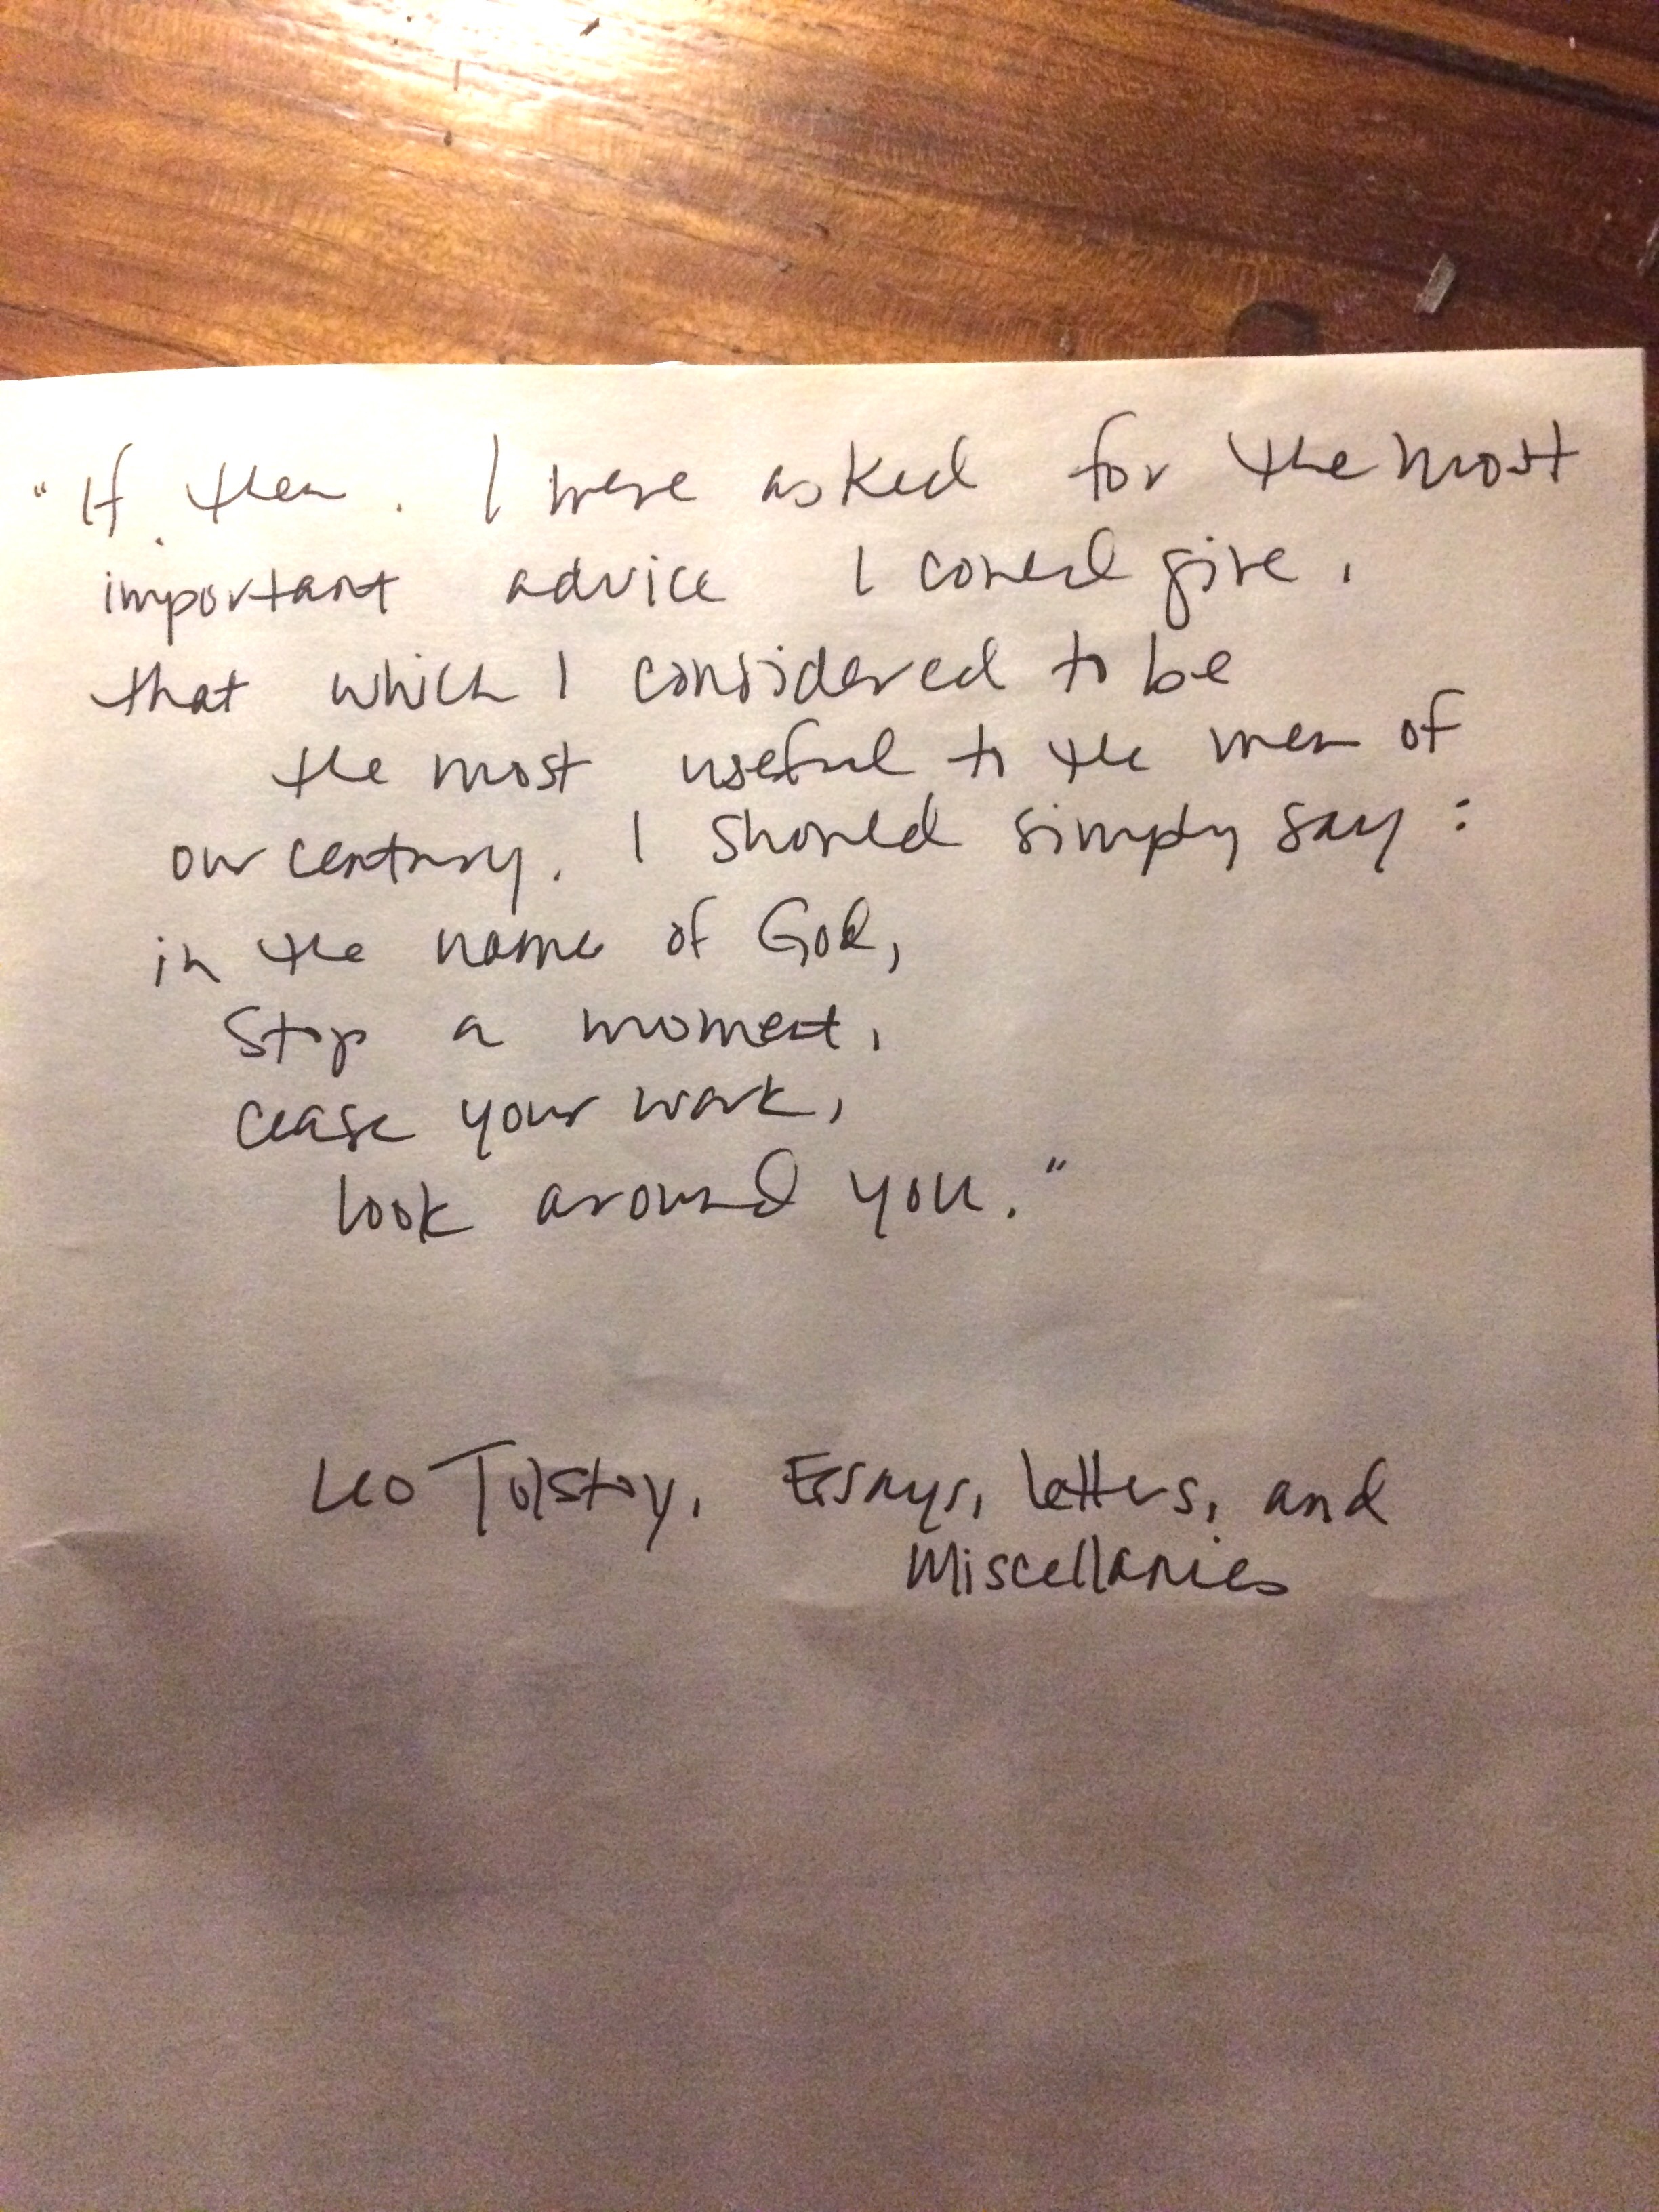 "If then, I were asked for the most
important advice I could give,
that which I considered to be
the most useful to the men of
our century, I should simply say:
in the name of God,
stop a moment,
cease your work,
look around you."
Leo Tolstoy, Essays, Letters, and
Miscellanies